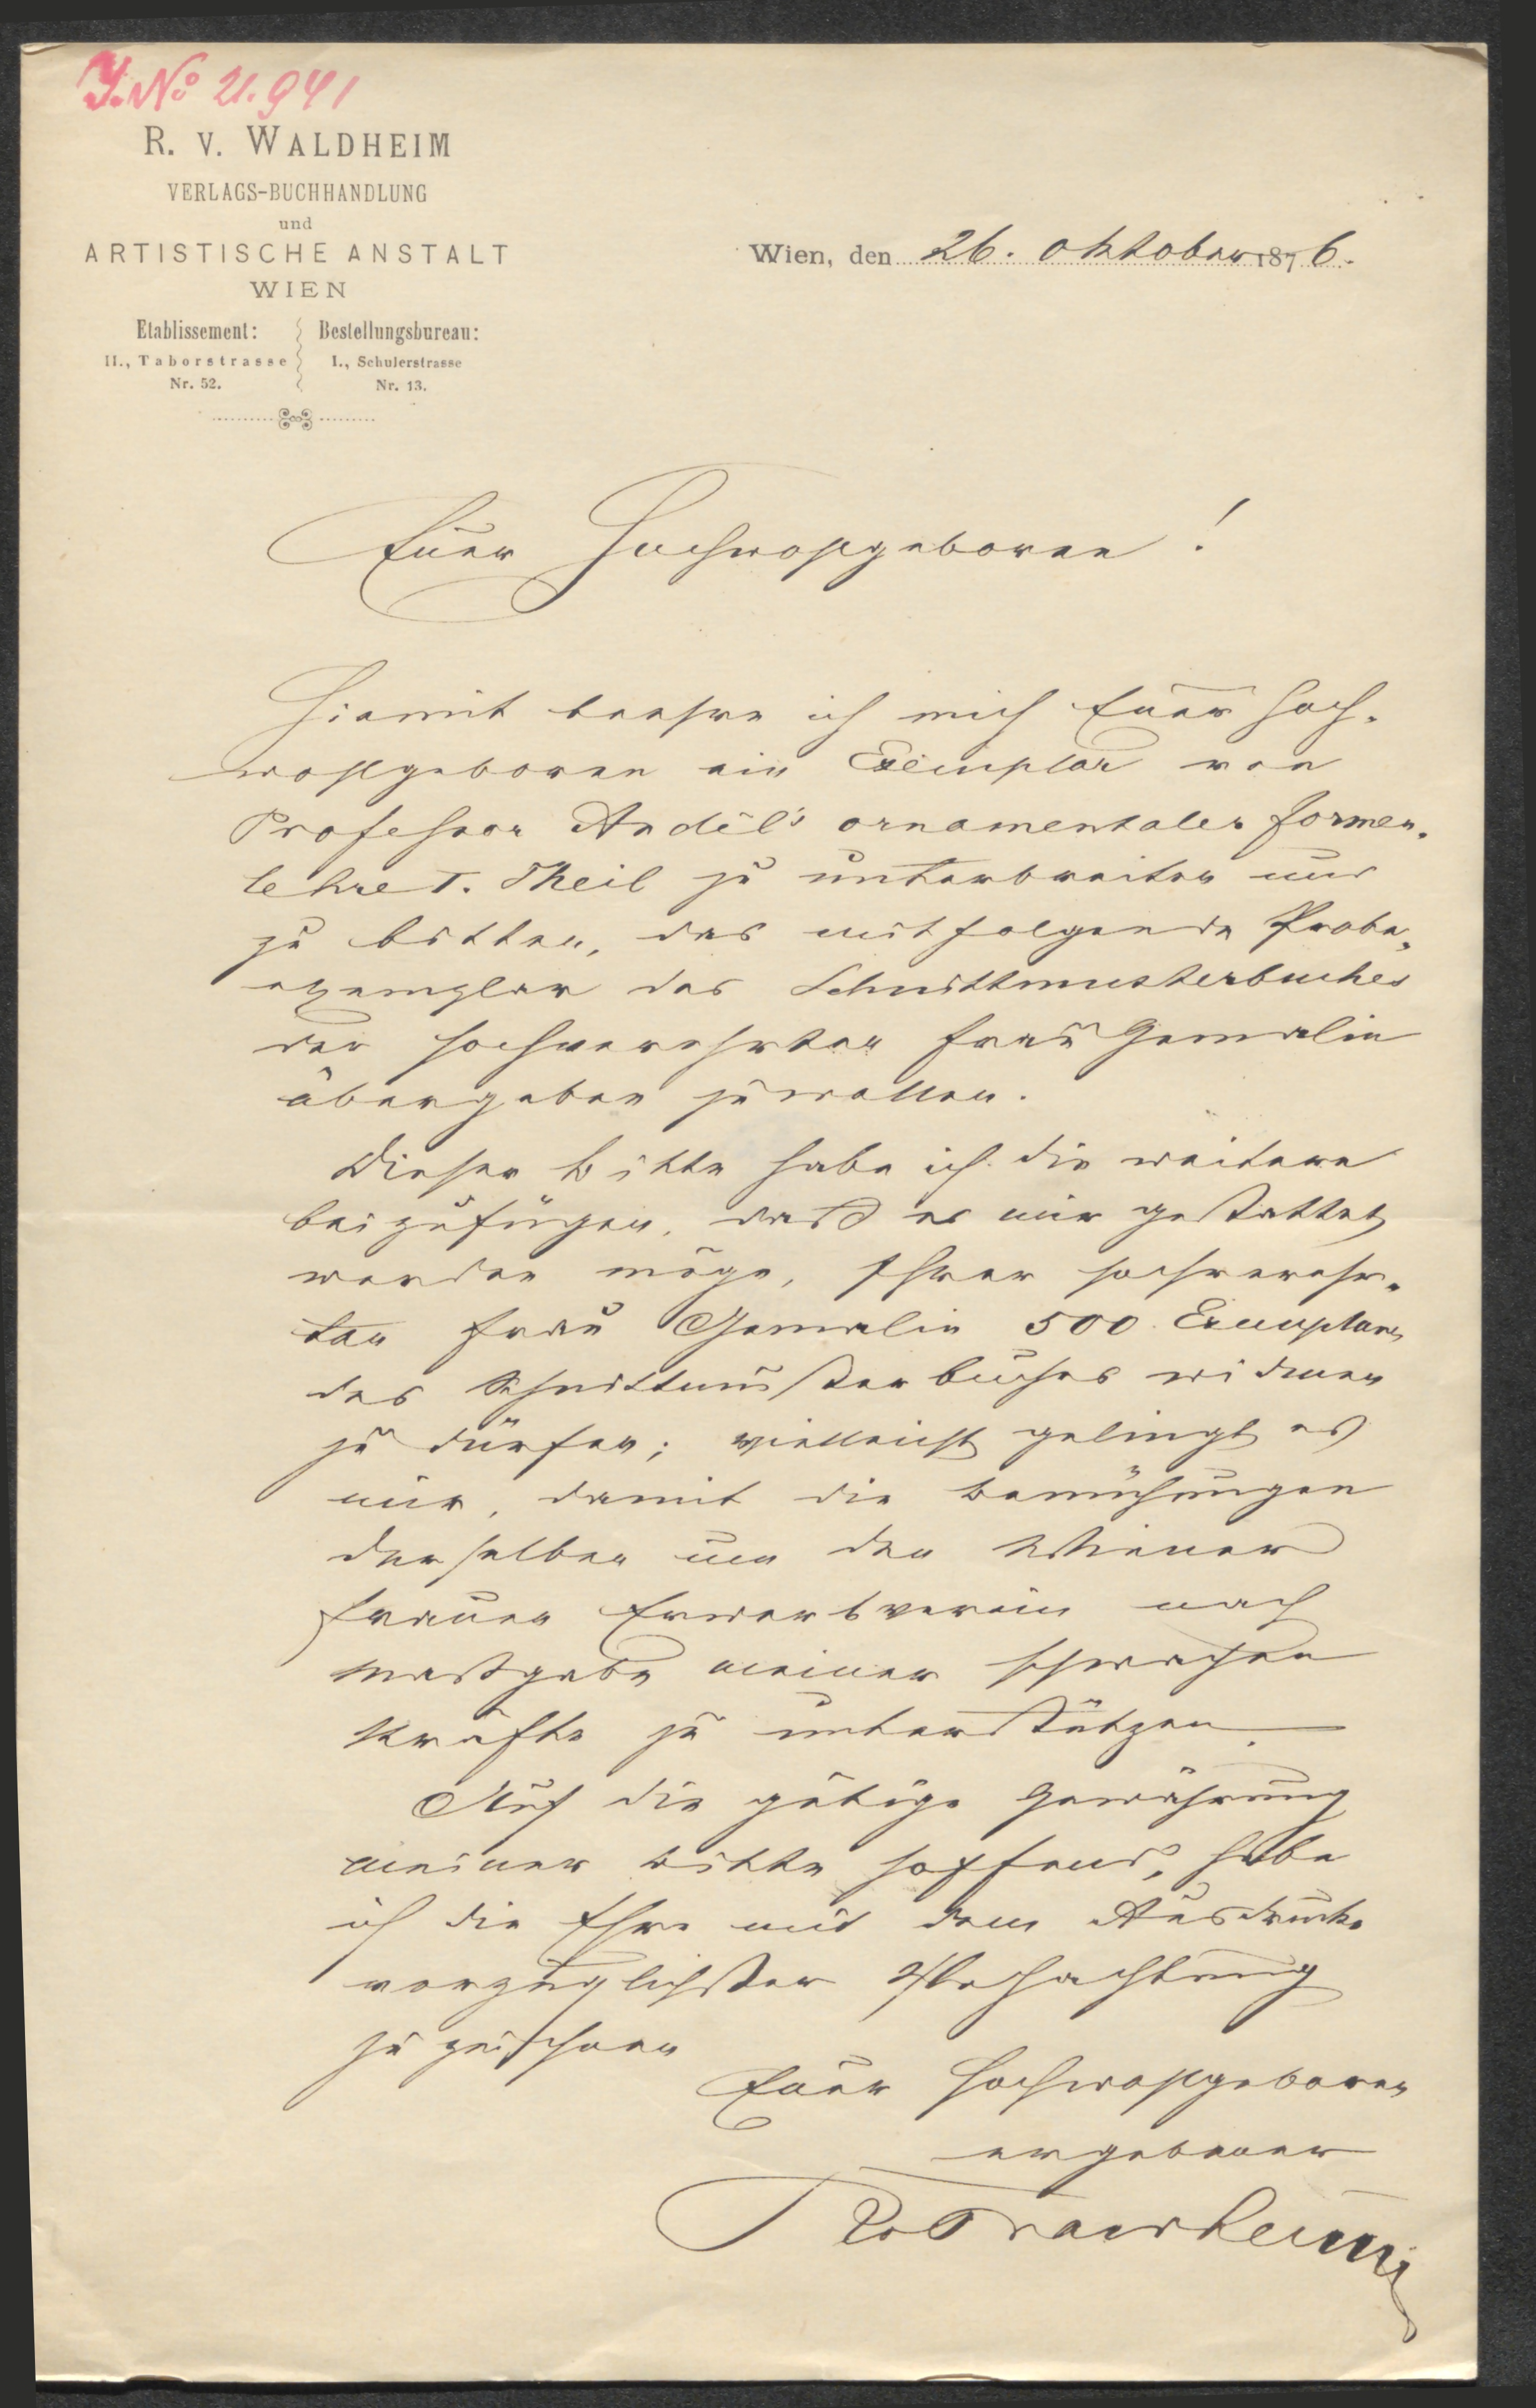 J. No 21.941
R. V. WALDHEIM
VERLAGS-BUCHHANDLUNG
und
ARTISTISCHE ANSTALT
WIEN
Etablissement: Bestellungsbureau:
II., Taborstrasse I., Schulerstrasse
Nr. 52. Nr. 13.
Wien, den 26. Oktober 1876.
Euer Hochwohlgeboren!
Hiemit beehre ich mich Euer Hoch-
wohlgeboren ein Exemplar von
Professor Andél's ornamentaler Formen-
lehre I. Theil zu unterbreiten und
zu bitten, das mitfolgende Probe-
exemplar des Schnittmusterbuches
der hochverehrten Frau Gemalin
übergeben zu wollen.
Dieser Bitte habe ich die weitere
beizufügen, dass es mir gestattet
werden möge, Ihrer hochverehr-
ten Frau Gemalin 500 Exemplare
des Schnittmusterbuches widmen
zu dürfen; vielleicht gelingt es
mir, damit die Bemühungen
derselben um den Wiener
Frauen Erwerbverein nach
Massgabe meiner schwachen
Kräfte zu unterstützen.
Auf die gütige Gewährung
meiner Bitte hoffend, habe
ich die Ehre mit dem Ausdrucke
vorzüglichster Hochachtung
zu zeichnen
Euer Hochwohlgeboren
ergebener
RvWaldheim